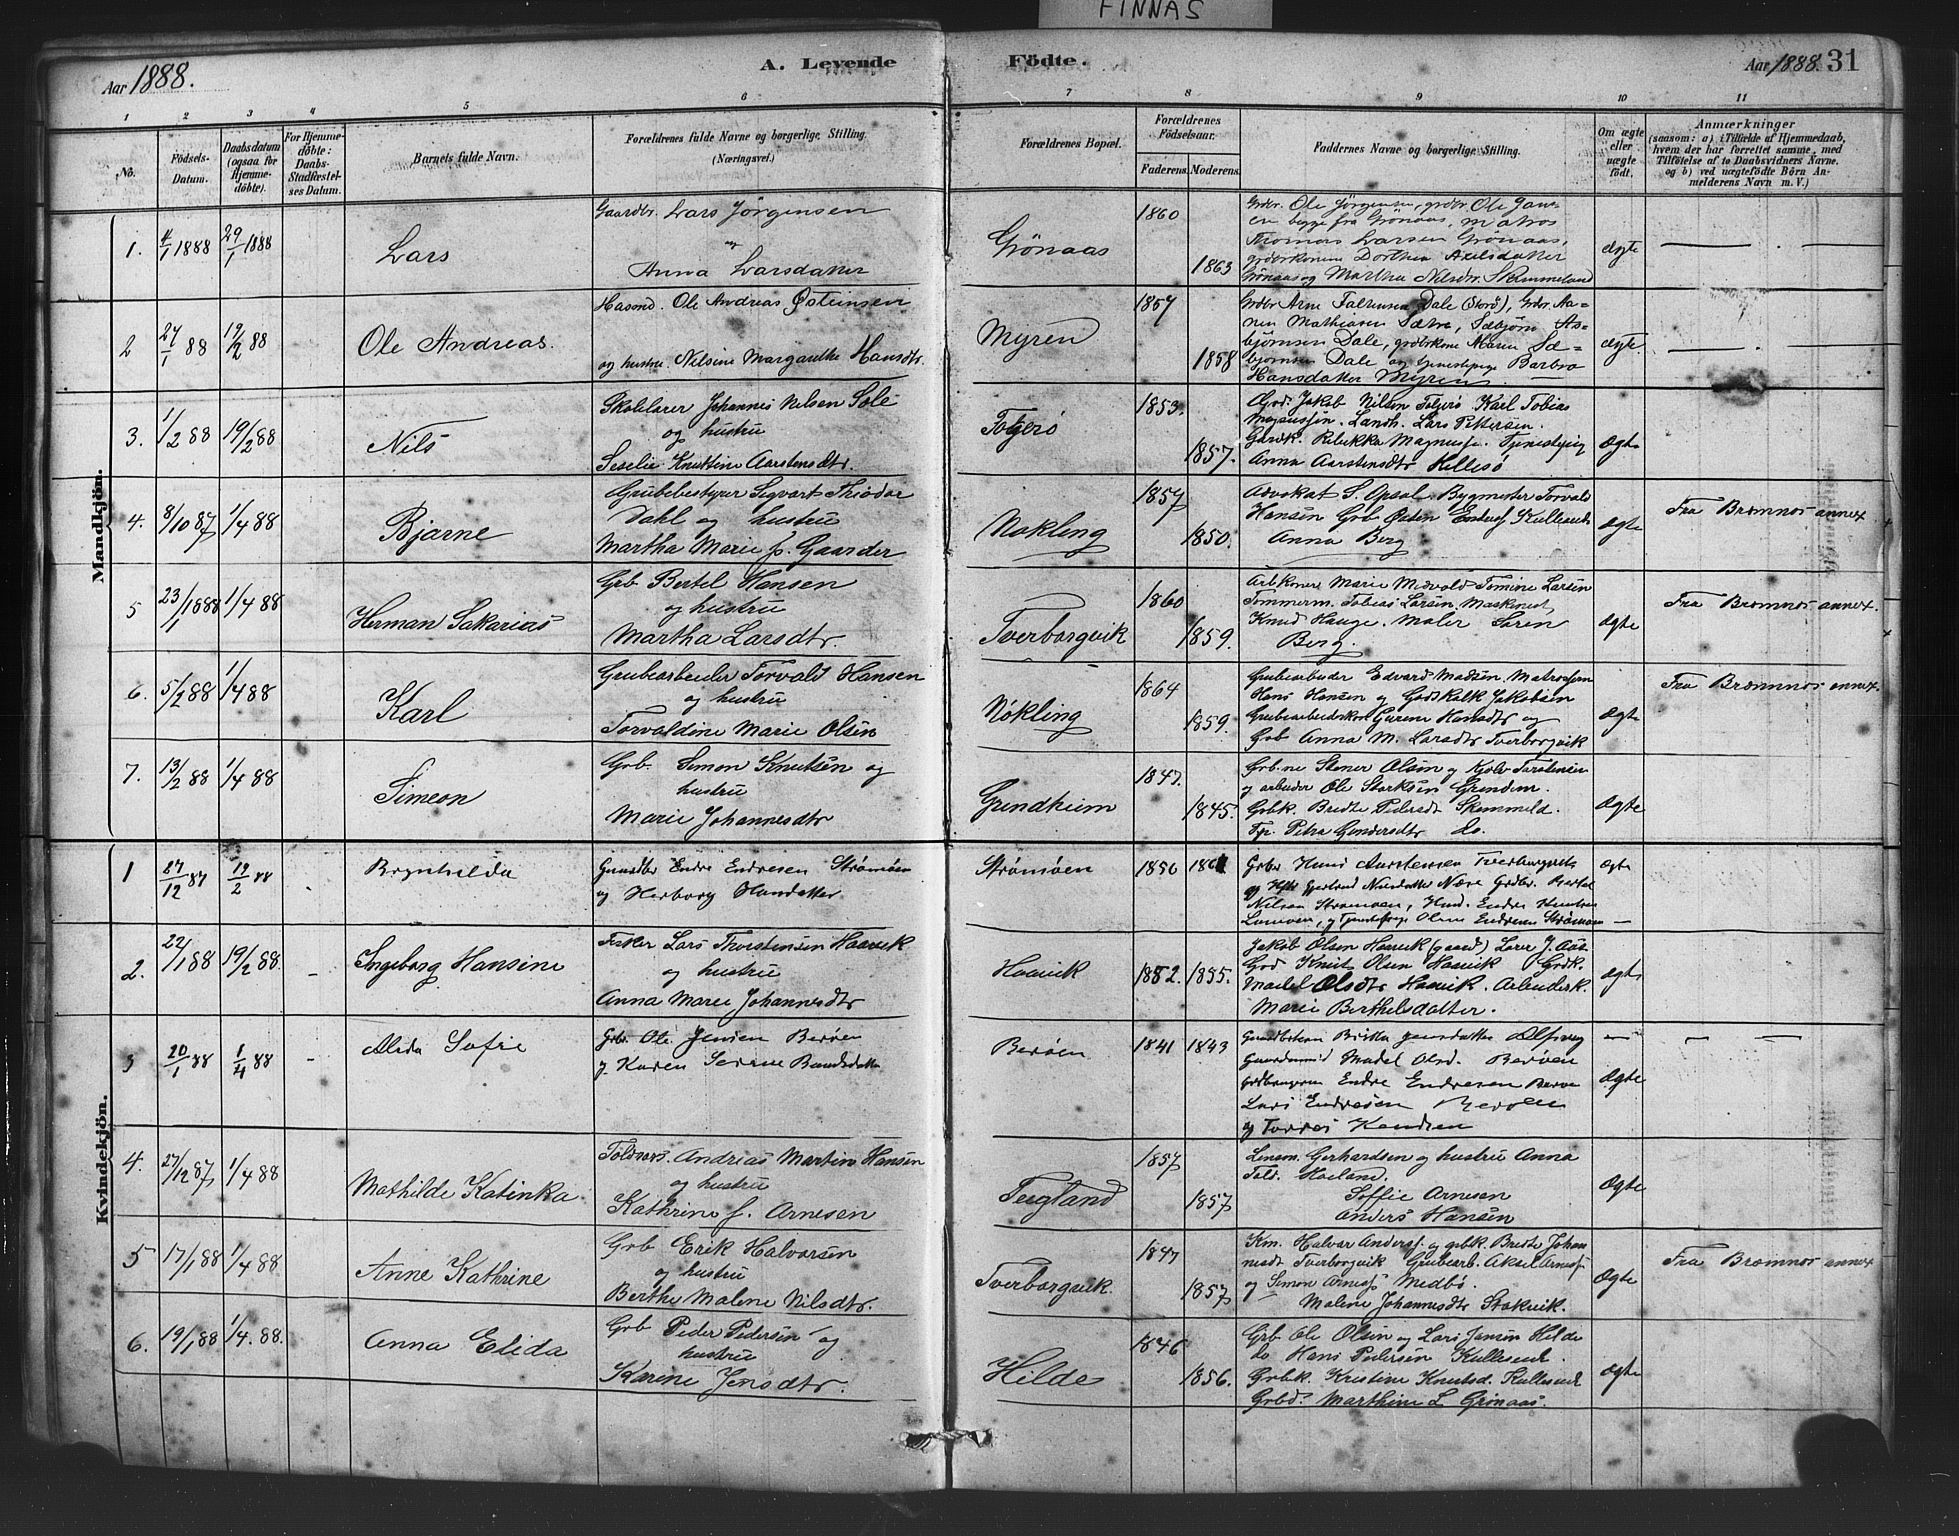 FINNAS
Aar 1888.
A. Levende Födte.
Aar 1888. 31
1 2 3 4 5 6 7 8 9 10 11
No.
Födsels-Datum.
Daabsdatum (ogsaa for Hjemme-döbte).
For Hjemme-döbte: Daabs-Stadfæstelses Datum.
Barnets fulde Navn.
Forældrenes fulde Navne og borgerlige Stilling.
(Næringsvei.)
Forældrenes Bopæl.
Forældrenes Födselsaar.
Faderens. Moderens.
Faddernes Navne og borgerlige Stilling.
Om ægte eller uægte födt.
Anmærkninger
(saasom: a) i Tilfælde af Hjemmedaab,
hvem der har forrettet samme, med
Tilföielse af to Daabsvidners Navne.
og b) ved uægtefödte Börn An-
melderens Navn m. V.)
Mandkjön.
1. 4/1 1888 29/1 1888
Lars
Gaardbr. Lars Jörgensen
og
Anna Larsdatter
Grönaas
1860
1863
Grdbr. Ole Jörgensen, grdbr. Ole
begge fra Grönaas, matros
Thomas Larsen Grönaas,
grdbrkonen Dorthea Axelsdatter
Grönaas og Martha Nilsdtr. Skimmeland
ægte
2 27/1 88 19/2 88
Ole Andreas.
Husmd. Ole Andreas Østeinsen
og hustru. Nilsine Margarethe Hansdtr.
Myren
1857
1858
Grdbr Arne Dale (Stord), Grdbr. Aa-
nen Mathiasen Sætre, Sæbjørn As-
bjørnsen Dale, grdbrkone Maren Sæ-
bjørnsen Dale og tjenestepige Barbro
Hansdatter Myren.
ægte.
3. 1/2 88 19/2 88
Nils
Skolelærer Johannes Nilsen Sole
og hustru
Seselie Knuttine Aarstensdtr.
Fogerø
1853.
1857.
Jakob Nilsen Karl Tobias
Magnussøn. Landh. Lars Pettersen.
Gardk. Rebekka Magnuss. Tjenestepig
Anna Aarstensdtr Hellesø
Ægte
4. 8/10 87 1/4 88
Bjarne
Grubebestyrer Segvart Thiodor
Dahl og hustru
Martha Marie f. Gaarder
Nokling
1857
1850.
Advokat S. Opsal. Bygmester Torvald
Hansen Grb Østen Kulleseid
Anna Berg
Ægte
Fra Bremnes annex
5 23/1 1888 1/4 88
Herman Sakarias
Grb Bertel Hansen
og hustru
Martha Larsdtr.
Tverborgvik
1860
1859.
Arbkoner Marie Medvold Tomine Larsen
Tommerm. Tobias Larsen. Maskinist
Knud Hauge. Maler Søren
Berg.
Ægte
Fra Bremnes annex.
6. 5/2 88 1/4 88
Karl
Grubearbeider Torvald Hansen
og hustru
Torvaldine Marie Olsen
Nökling
1864
1859.
Grubearbeider Edvard Madsen. Matroserne
Hans Hansen og Godskalk Jakobsen
Grubearbeidskon Gurene Hansdtr og
Grb Anna M. Larsdtr Tverborgvik
Ægte
Fra Bremnes annex.
7. 13/2 88 1/4 88
Simeon
Grb. Simon Knutsen og
hustru
Marie Johannesdtr
Grindheim
1847.
1845.
Grb.ne Stener Olsen og
og arbeider Ole Storksen Grindem.
Grbk. Bredte Pedersdt Skemmeld.
Tp. Petra Gundersdtr do.
Ægte
Kvindekjön.
1 27/12 87 19/2 88
Brynhilda
Gaardbr Endre Endresen Strömöen
og Herborg Hansdatter
Strömöen
1856
Grbr Hans Aarstensen
Gjertrud Nilsdatter Næse Grdbr. Bertel
Nilsen Strömöen, Husd. Endre Knutsen
og Tjenestepige Olene Endresen Strömöen
Ægte
2. 22/1 88 19/2 88. -
Ingeborg Hansine
Fisker Lars Thorstensen Haavik
og hustru
Anna Marie Johannesdtr
Haavik
1852. 1855.
Jakob Olsen Haavik (gaard)
Grd Knut Olsen Haavik Grdk.
Madel Olsdtr Haavik. Arbeiderk.
Marie Berthelsdatter.
Ægte
3 20/1 88 1/4 88 -
Alida Sofie
Grbr. Ole Jensen Berøen
og Karen Serine
Berøen
1841 1843
Brita Jensdatter
Gaardmand Madel Olsd. Berøen
Endre Endresen
Lars Endresen Berøen
og Torres Knudsen
Ægte
4. 27/12 87 1/4 88
Mathilde Katinka
Toldvors. Andreas Martin Hansen
og hustru
Kathrine f. Arnesen
Tergland
1857
1857
Gerhardsen og hustru Anna
Told. Hoeland.
Soffie Arnesen
Anders Hansen
Ægte
5 17/1 88 1/4 88
Anne Kathrine
Grb Erik Halvorsen
og hustru
Berthe Malene Nilsdtr.
Tverborgvik.
1847
1857
Km. Halvar Anderss. og grbk. Bredte Johan
nesdt Tverborgvik Grubearb. Aksel Arness
og Simon Arness Medbø.
Malene Johannesdtr Stokvik.
Ægte
Fra Bremnes annex
6. 19/1 88 1/4. 88.
Anna Elida
Grb Peder Pedersen og
hustru
Karine Jensdtr.
Hilde
1846
1856.
Grb Ole Olsen og Lars Jensen Hilde
do Hans Pedersen Kulleseid.
Grbk. Kristine Knutsd. Kulleseid
Grbd. Marthine L Grönaas.
Ægte